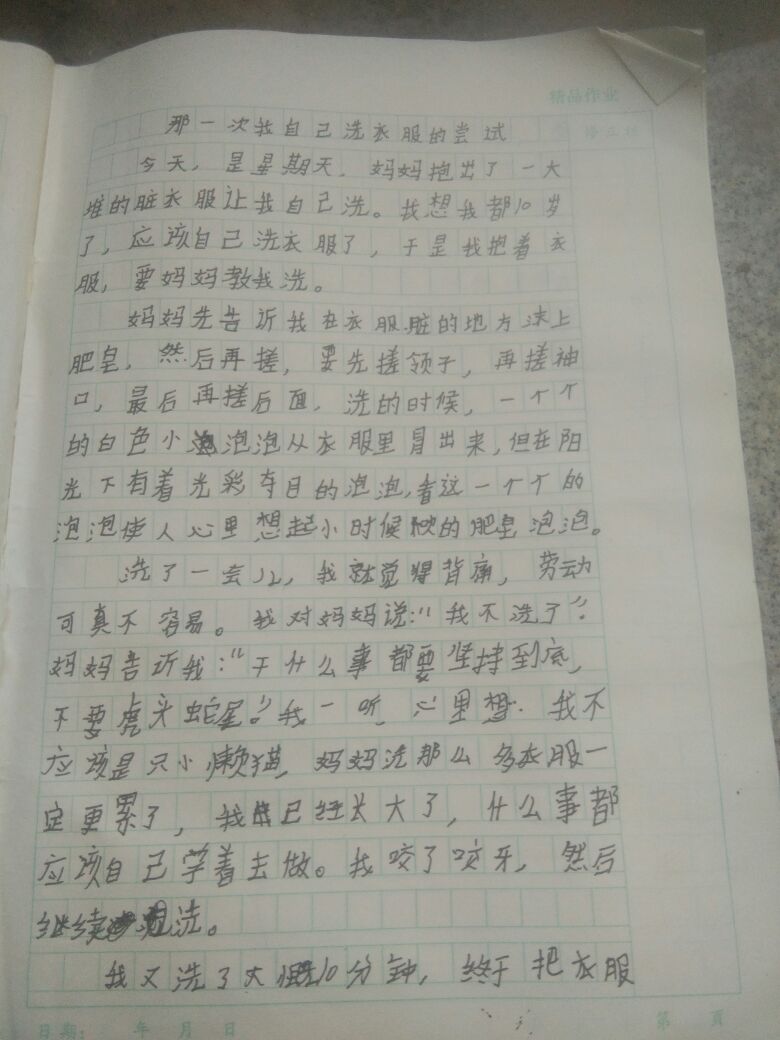 精品作业
那一次我自己洗衣服的尝试
今天，是星期天，妈妈抱出了一大
堆的脏衣服让我自己洗。我想我都10岁
了，应该自己洗衣服了，于是我抱着衣
服，要妈妈教我洗。
妈妈先告诉我在衣服脏的地方沫上
肥皂，然后再搓，要先搓领子，再搓袖
口，最后再搓后面，洗的时候，一个个
的白色小泡泡从衣服里冒出来，但在阳
光下有着光彩夺目的泡泡，看这一个个的
泡泡使人心里想起小时候吹的肥皂泡泡。
洗了一会儿，我就觉得背痛，劳动
可真不容易。我对妈妈说：“我不洗了”。
妈妈告诉我：“干什么事都要坚持到底，
不要虎头蛇尾。”我一听，心里想：我不
应该是只小懒猫，妈妈洗那么多衣服一
定更累了，我已经长大了，什么事都
应该自己学着去做。我咬了咬牙，然后
继续洗。
我又洗了大概10分钟，终于把衣服
日期： 年 月 日 第 页